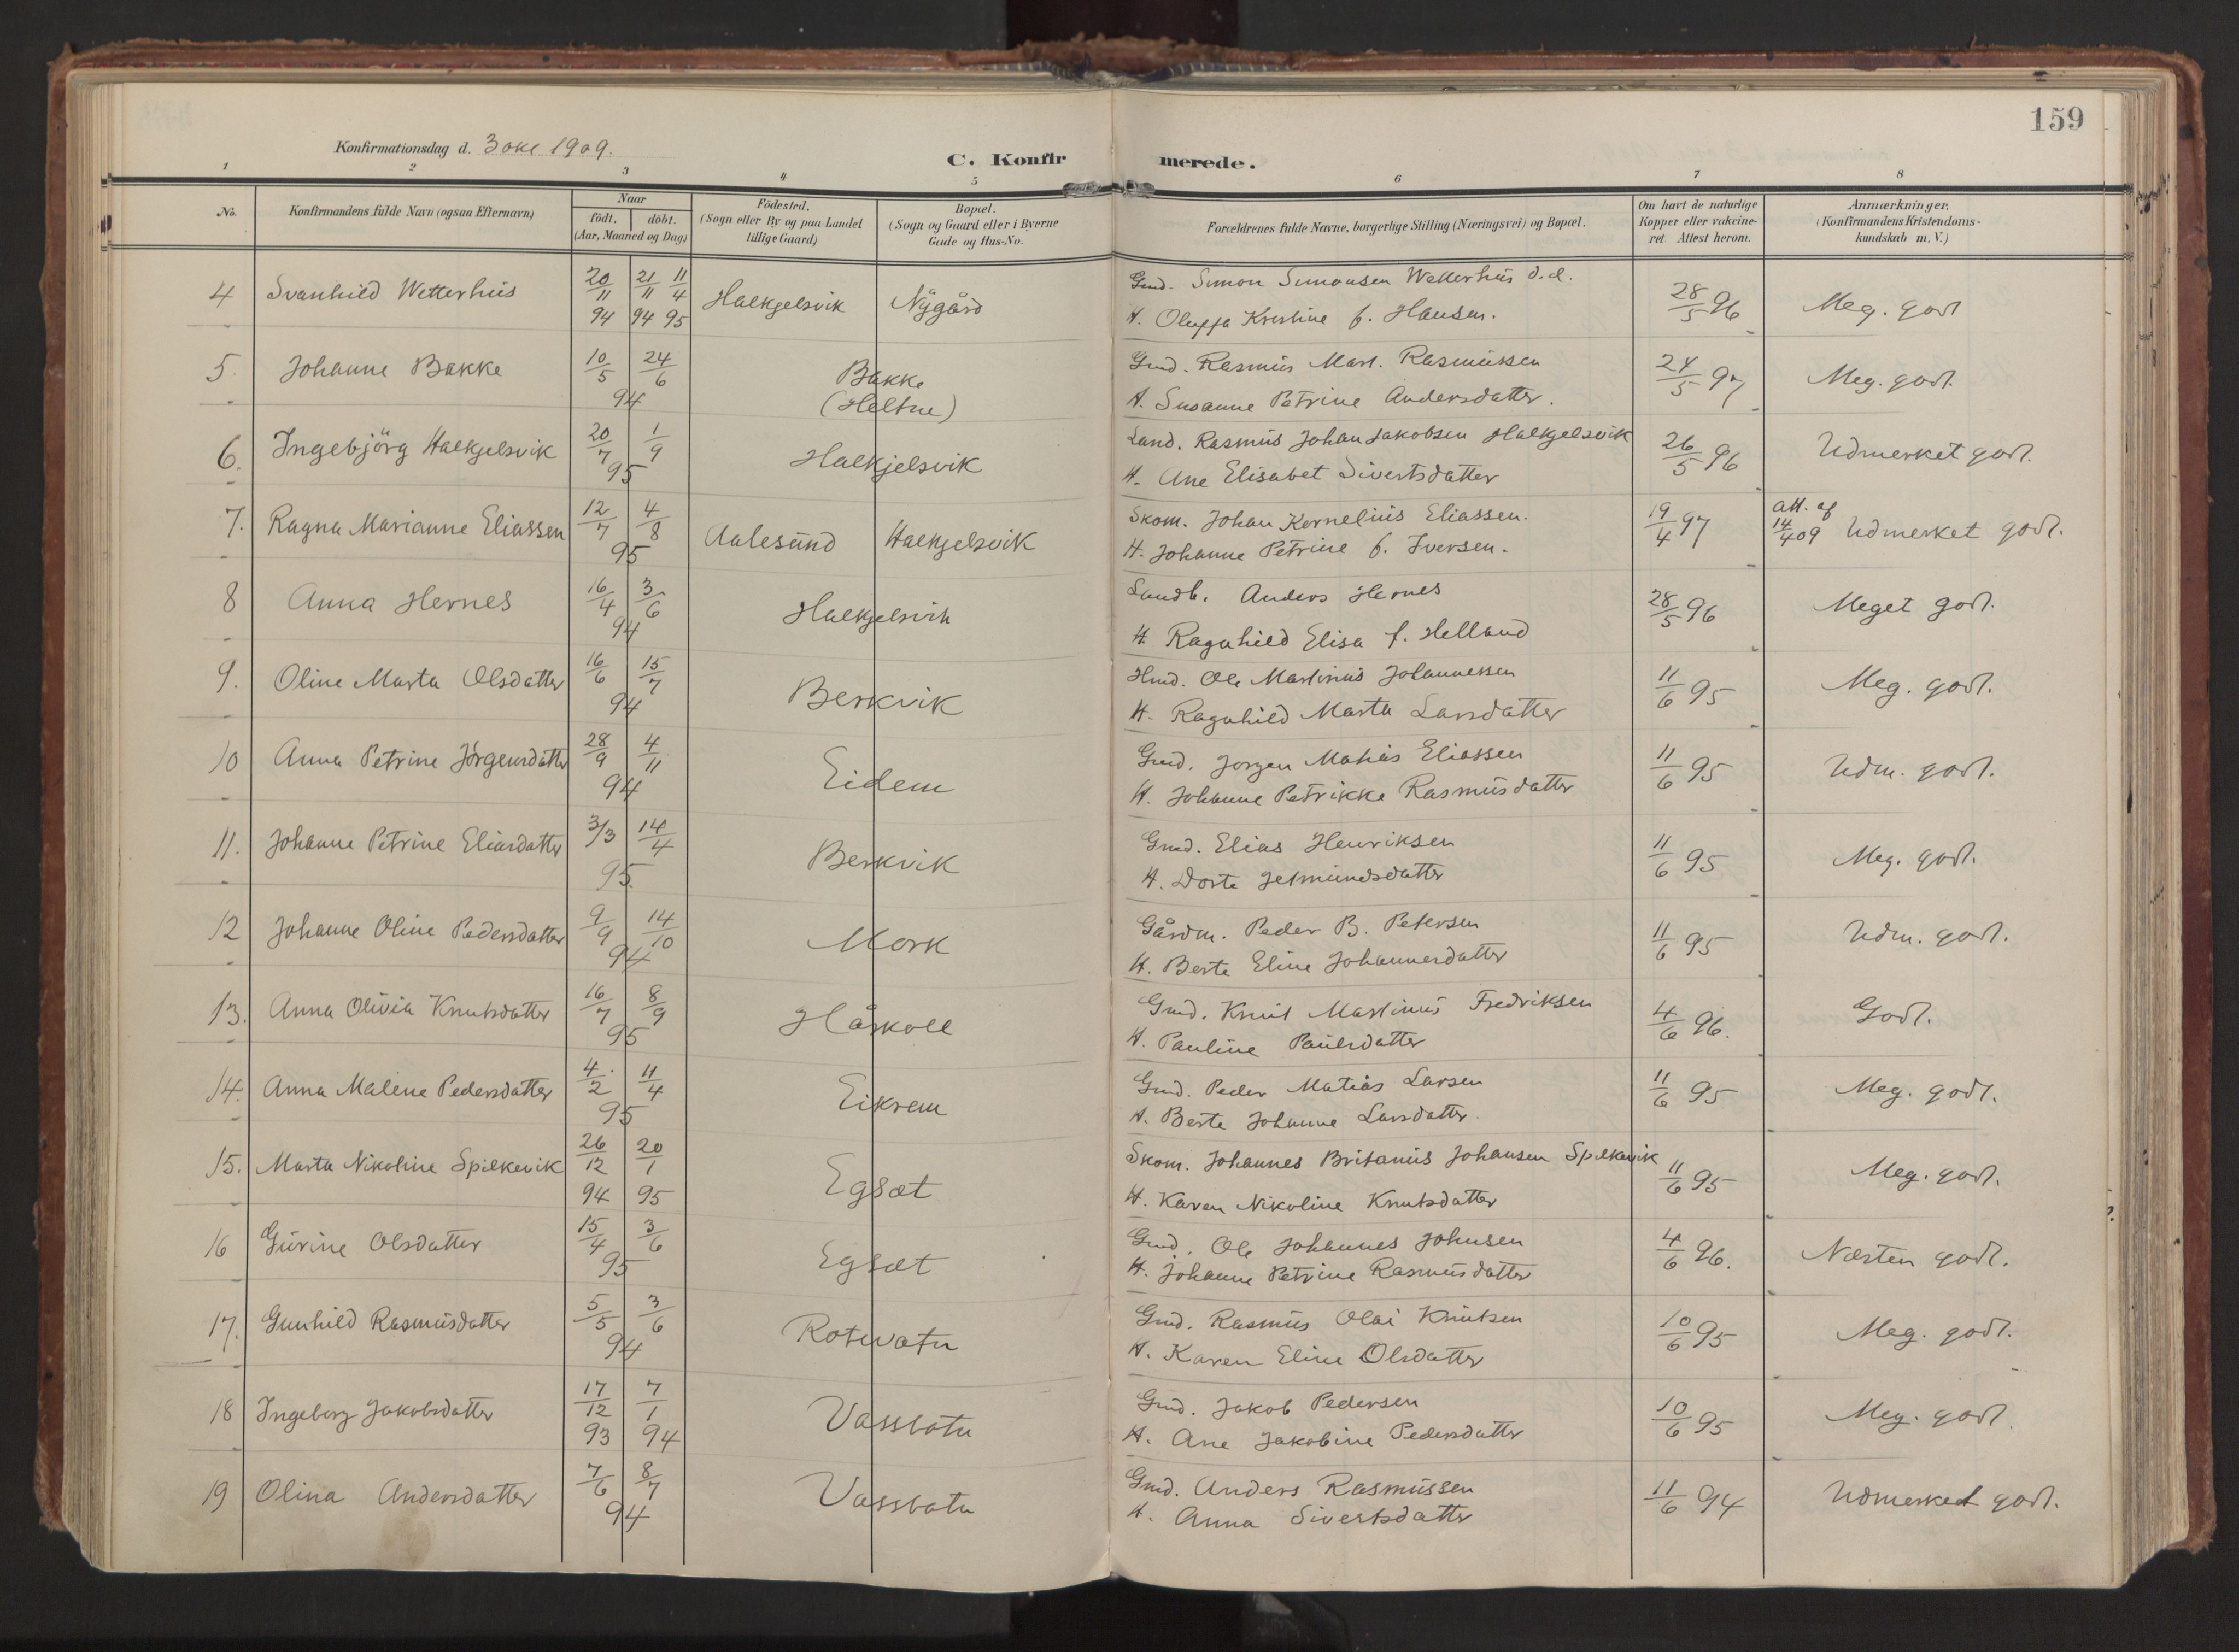 159
Konfirmationsdag d. 3 okt 1909.
C. Konfirmerede.
1 2 3 4 5 6 7 8
No. Konfirmandens fulde Navn (ogsaa Efternavn) Naar født. døbt. (Aar, Maaned og Dag) Födested. (Sogn eller By og paa Landet tillige Gaard) Bopæl. (Sogn og Gaard eller i Byerne Gade og Hus-No. Forældrenes fulde Navne, borgerlige Stilling (Næringsvei) og Bopæl. Om havt de naturlige Kopper eller vakcineret. Attest herom. Anmærkninger. (Konfirmandens Kristendomskundskab m. V.)
4 Svanhild Wetterhus 20/11 94 21/11 94 11/4 95 Halkjelsvik Nygård Gmd. Simon Simonsen Wetterhus d.d. 28/5 96 Meg. godt
H. Oluffa Kristine f. Hansen.
5. Johanne Bakke 10/5 24/6 94 Bakke (Heltne) Gmd. Rasmus Mart. Rasmussen 24/5 97 Meg. godt.
H. Susanne Petrine Andersdatter.
6. Ingebjörg Halkjelsvik 20/7 1/9 95 Halkjelsvik Land. Rasmus Johan Jakobsen Halkjelsvik 26/5 96 Udmerket godt.
H. Ane Elisabet Sivertsdatter
7. Ragna Marianne Eliassen 12/7 4/8 95 Aalesund Halkjelsvik Skom. Johan Kornelius Eliassen. 19/4 97 Att. af 14/4 09 Udmerket godt.
H. Johanne Petrine f. Iversen.
8 Anna Hernes 16/4 3/6 94 Halkjelsvik Landb. Anders Hernes 28/5 96 Meget godt.
H. Ragnhild Elisa f. Helland
9. Oline Marta Olsdatter 16/6 15/7 94 Berkvik Hmd. Ole Martinus Johannessen 11/6 95 Meg. godt.
H. Ragnhild Marta Larsdatter
10 Anna Petrine Jörgensdatter 28/9 4/11 94 Eidem Gmd. Jorgen Matias Eliassen 11/6 95 Udm. godt.
H. Johanne Petrikke Rasmusdatter
11. Johanne Petrine Eliasdatter 3/3 14/4 95. Berkvik Gmd. Elias Henriksen 11/6 95 Meg. godt.
H. Dorte Jetmundsdatter
12 Johanne Oline Pedersdatter 9/9 14/10 94 Mork Gårdm. Peder B. Petersen 11/6 95 Udm. godt.
H. Berte Eline Johannesdatter
13. Anna Olivia Knutsdatter 16/7 8/9 95 Håskoll Gmd. Knut Martinus Fredriksen 4/6 96. Godt.
H. Pauline Paulsdatter
14. Anna Malene Pedersdatter 4/2 11/4 95 Eikrem Gmd. Peder Matias Larsen 11/6 95 Meg. godt.
H. Berte Johanne Larsdatter.
15. Marta Nikoline Spilkevik 26/12 94 20/1 95 Egset Skom. Johannes Britanus Johansen Spilkevik 11/6 95 Meg. godt.
H. Karen Nikoline Knutsdatter
16 Gurine Olsdatter 15/4 3/6 95 Egset Gmd. Ole Johannes Johnsen 4/6 96. Næsten godt.
H. Johanne Petrine Rasmusdatter
17. Gunhild Rasmusdatter 5/5 3/6 94 Rotvatn Gmd. Rasmus Olai Knutsen 10/6 95 Meg. godt.
H. Karen Eline Olsdatter
18 Ingeborg Jakobsdatter 17/12 93 7/1 94 Vassbotn Gmd. Jakob Pedersen 10/6 95 Meg. godt.
H. Ane Jakobine Pedersdatter
19 Olina Andersdatter 7/6 8/7 94 Vassbotn Gmd. Anders Rasmussen 11/6 94 Udmerket godt.
H. Anna Sivertsdatter